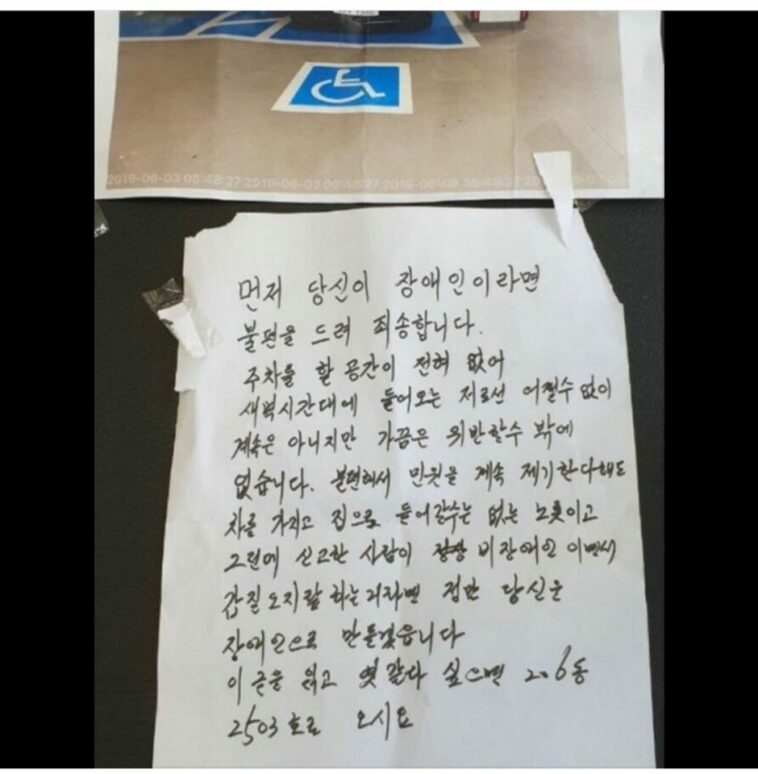 2019-06-03 05:48:27 2019-06-03 05:48:27 2019-06-03 05:48:27
먼저 당신이 장애인이라면
불편을 드려 죄송합니다.
주차를 할 공간이 전혀 없어
새벽시간대에 들어오는 저로선 어쩔수없이
계속은 아니지만 가끔은 위반할수 밖에
없습니다. 불편해서 민원을 계속 제기한다해도
차를 가지고 집으로 들어갈수는 없는 노릇이고
그런데 신고한 사람이 비장애인 이면서
갑질오지랖 하는거라면 당신을
장애인으로 만들겠습니다
이 글을 읽고 엿같다 싶으면 206동
2503호로 오시요